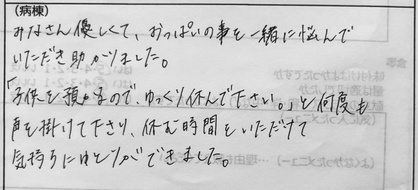 (病棟)
みなさん優しくて、おっぱいの事を一緒に悩んで
いただき助かりました。
「子供を預かるので、ゆっくり休んで下さい。」と何度も
声を掛けて下さり、休む時間をいただけて
気持ちにゆとりができました。